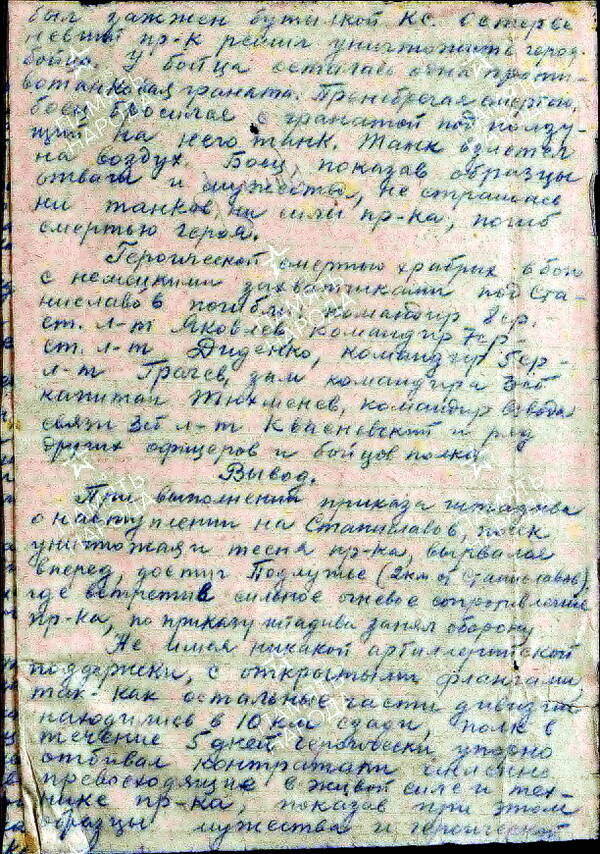 был зажжен бутылкой КС. Остерве
невший пр-к решил уничтожить героя
бойца. У бойца осталась одна проти-
вотанковая граната. Пренебрегая смертью,
боец бросился с гранатой под ползу-
щий на него танк. Танк взлетел
на воздух. Боец, показав образцы
отваги и мужества, не страшась
ни танков ни силы пр-ка, погиб
смертью героя.
Героической смертью храбрых в бою
с немецкими захватчиками под Ста-
ниславов погибли: командир 8ср. -
ст. л-т Яковлев, командир 7ср -
ст. л-т Диденко, командир 5ср -
л-т Грачев, зам командира 3сб
капитан Тюхменев, командир взвода
связи 3сб л-т Квасневский и ряд
других офицеров и бойцов полка.
Вывод.
При выполнении приказа штадива
о наступлении на Станиславов, полк
уничтожая и тесня пр-ка, вырвался
вперед, достиг Подлужье (2км от Станиславов),
где встретив сильное огневое сопротивление
пр-ка, по приказу штадива занял оборону
Не имея никакой артиллерийской
поддержки, с открытыми флангами,
так-как остальные части дивизии
находились в 10 км сзади, полк в
течение 5 дней героически упорно
отбивал контратаки
превосходящие в живой силе и тех-
нике пр-ка, показав при этом
образцы мужества и героической
ПАМЯТЬ НАРОДА